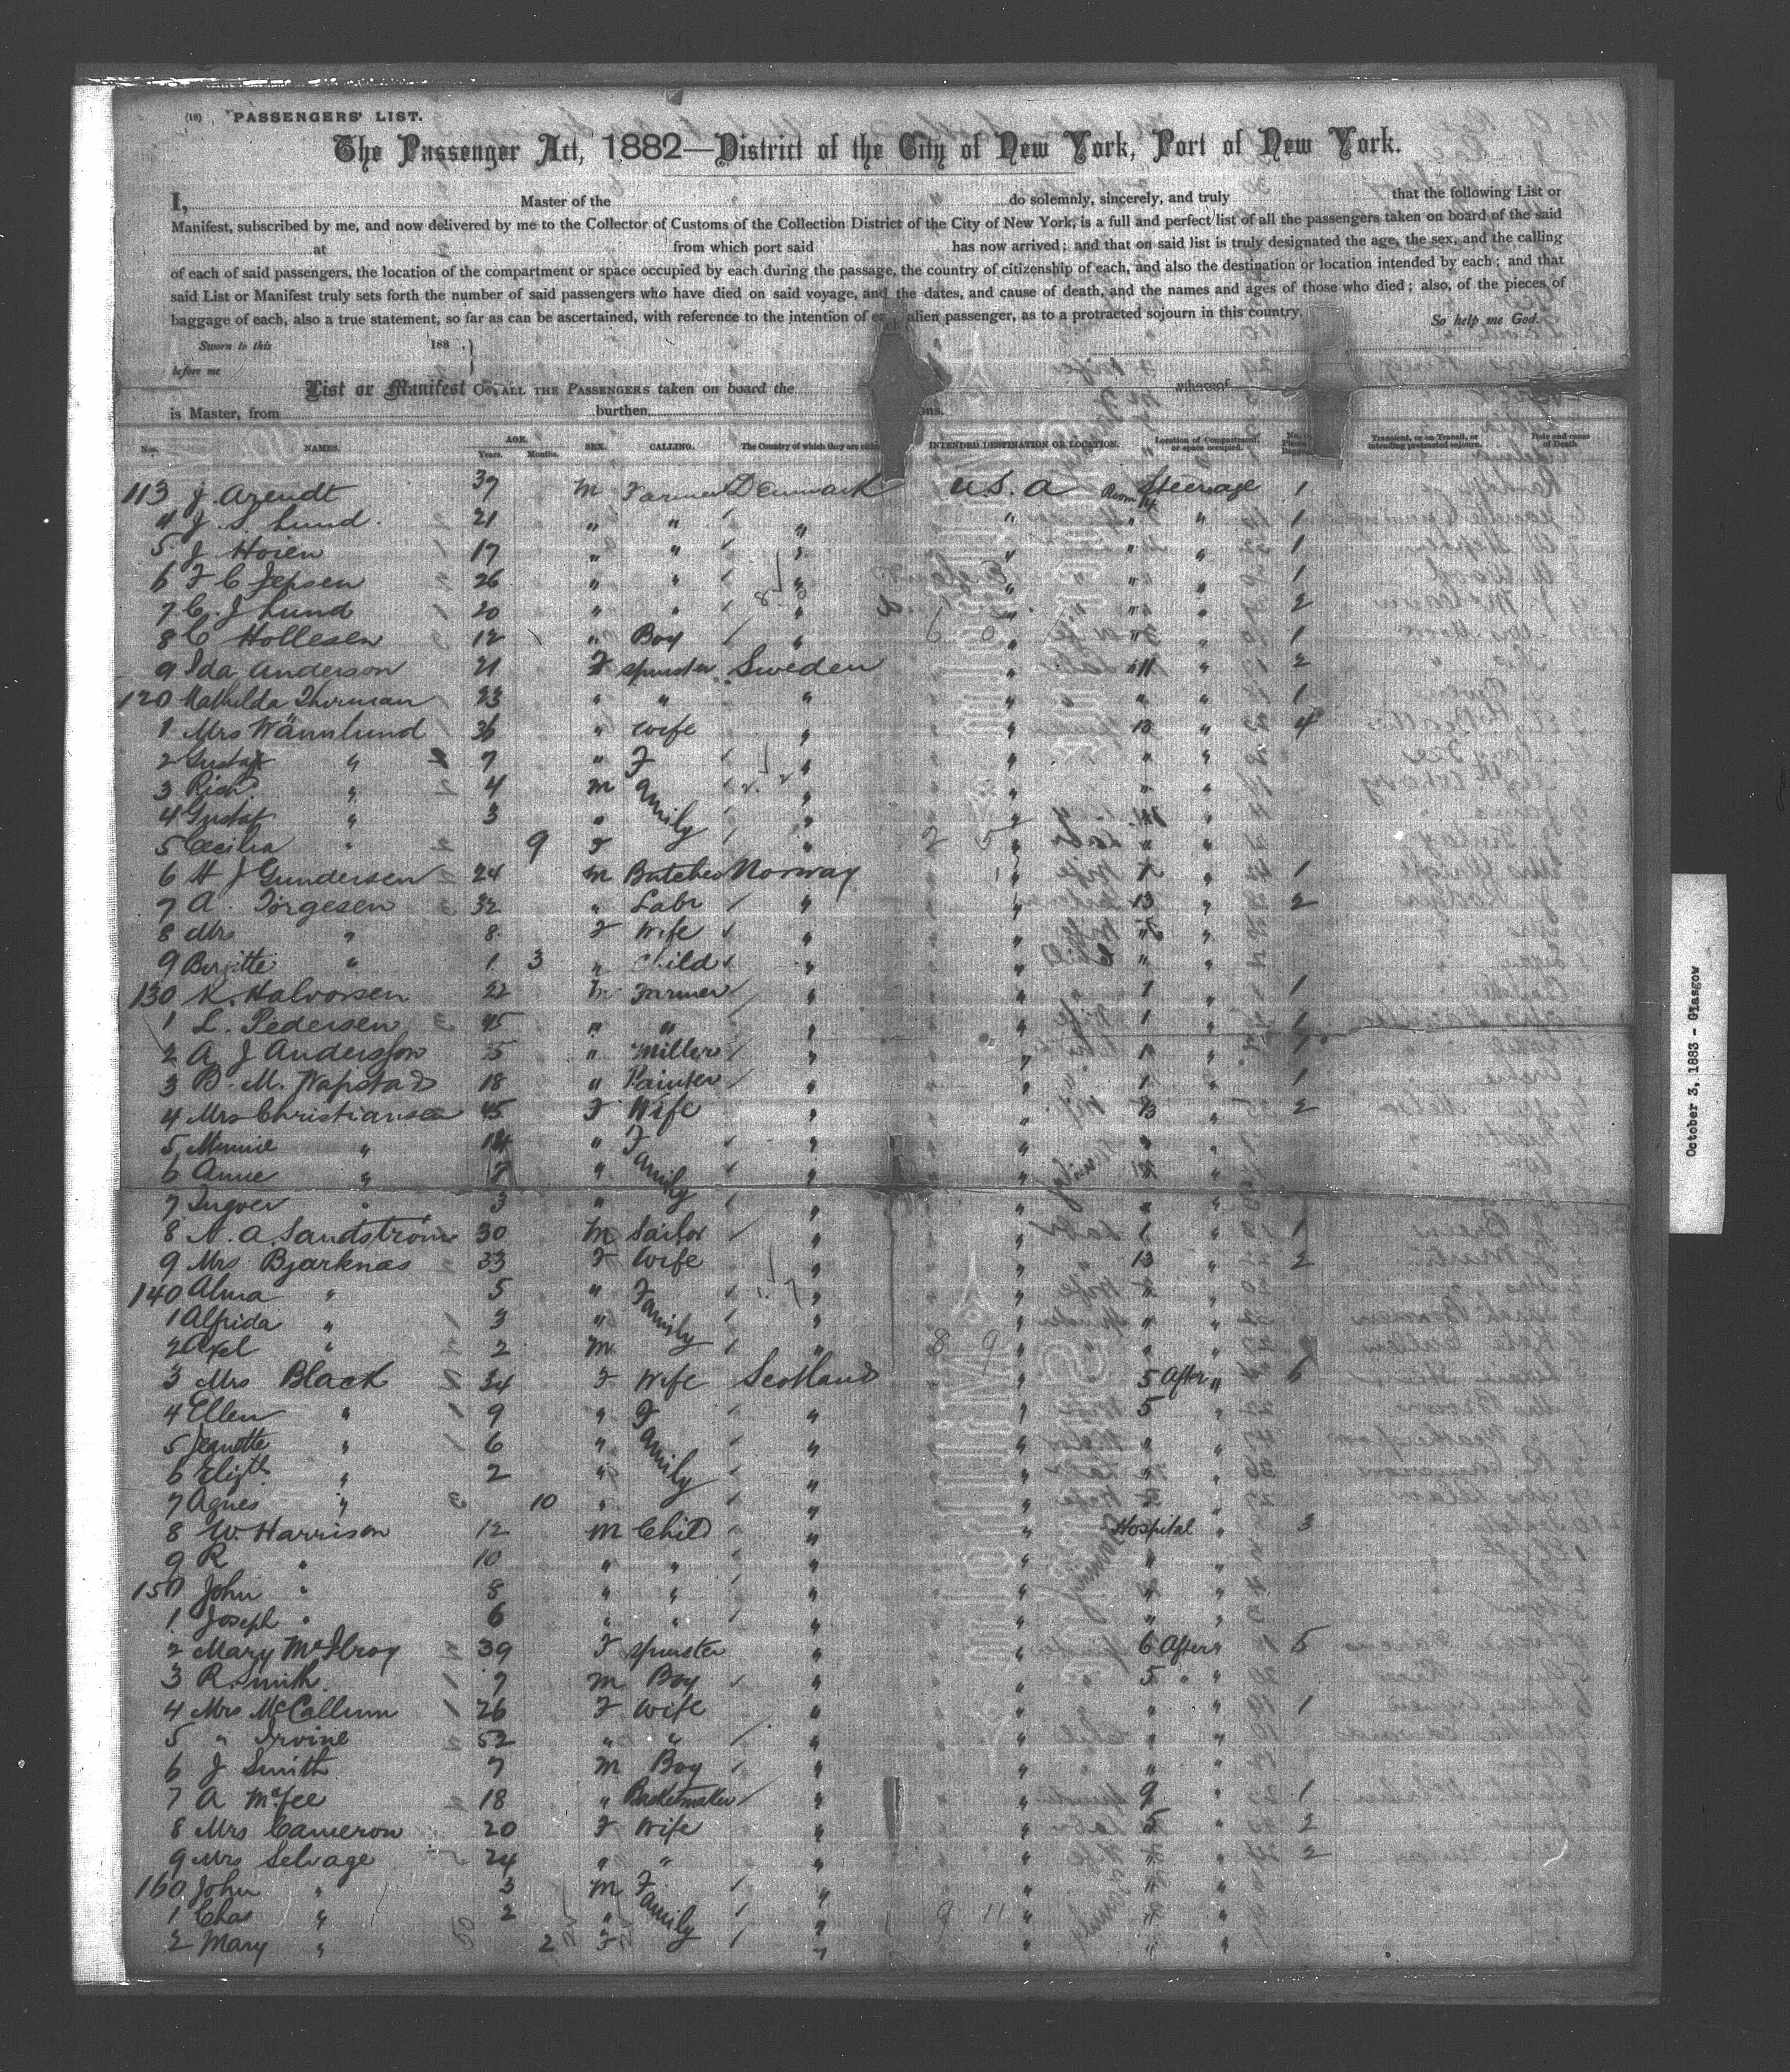 (18) PASSENGERS' LIST.
The Passenger Act, 1882—District of the City of New York, Port of New York.
I, Master of the do solemnly, sincerely, and truly that the following List or
Manifest, subscribed by me, and now delivered by me to the Collector of Customs of the Collection District of the City of New York, is a full and perfect list of all the passengers taken on board of the said
at from which port said has now arrived; and that on said list is truly designated the age, the sex, and the calling
of each of said passengers, the location of the compartment or space occupied by each during the passage, the country of citizenship of each, and also the destination or location intended by each; and that
said List or Manifest truly sets forth the number of said passengers who have died on said voyage, and the dates, and cause of death, and the names and ages of those who died; also, of the pieces of
baggage of each, also a true statement, so far as can be ascertained, with reference to the intention of each alien passenger, as to a protracted sojourn in this country. So help me God.
Sworn to this 188
before me
List or Manifest OF ALL THE PASSENGERS taken on board the whereof
is Master, from burthen tons.
Nos. NAMES. AGE. Years. Months. SEX. CALLING. The Country of which they are INTENDED DESTINATION OR LOCATION. Location of Compartment, or space occupied. Transient, or on Transit, or intending protracted sojourn. Date and cause of Death.
113 J. Arendt 39 M Farmer Denmark U.S.A Room 14 Steerage 1
4 J. S. Lund 21 " " " " " " 1
5 J Hoien 17 " " " " " " 1
6 F C Jepsen 26 " " " " " " 1
7 C. J Lund 20 " " " " " " 2
8 C Hollesen 12 " Boy " " " " 1
9 Ida Anderson 21 F Spinster Sweden " 11 " 2
120 Mathilda Thorman 23 " " " " " " 1
1 Mrs Wännlund 36 " Wife " " 13 " 4
2 Gustaf " 7 " Family " " " "
3 Rich " 4 M " " " "
4 Gustaf " 3 " " " "
5 Cecilia " 9 F " " " "
6 H J Gundersen 24 M Butcher Norway " " 1
7 A. Torgesen 32 " Labr " " 13 " 2
8 Mrs " F Wife " " "
9 Birgitte " 1 3 " Child " " " "
130 K. Halvorsen 22 M Farmer " " 1 " 1
1 L. Pedersen 45 " " " " 1 " 1
2 A J Andersson " Miller " " " 1
3 B. M. Wapstad 18 " Painter " " 1 " 1
4 Mrs Christiansen 45 F Wife " " 13 " 2
5 Minnie " 14 " Family " " " "
6 Anne " 7 " " " "
7 Ingver " 3 " " " " "
8 N. A. Sandström 30 M Sailor " " 1 " 1
9 Mrs Bjarknas 33 F Wife " " 13 " 2
140 Alma " 5 " Family " " " "
1 Alfrida " 3 " " " " "
2 Axel " 2 M " " " "
3 Mrs Black 34 F Wife Scotland " 5 After " 6
4 Ellen " 9 " Family " " 5 "
5 Jeanette " 6 " " " " "
6 Elizth " 2 " " " " "
7 Agnes " 10 " " " " "
8 W. Harrison 12 M Child " " Hospital " 3
9 R " 10 " " " " " "
150 John " 8 " " " " " "
1 Joseph " 6 " " " " " "
2 Mary McIlroy 39 F Spinster " " 6 After " 5
3 R. Smith 7 M Boy " " 5 " "
4 Mrs McCallum 26 F Wife " " " " 1
5 " Irvine 52 " " " " " "
6 J Smith 7 M Boy " " " "
7 A McFee 18 " Basketmaker " " 9 " 1
8 Mrs Cameron 20 F Wife " " 5 " 2
9 Mrs Selvage 24 " " " " " " 2
160 John " 3 M Family " " " "
1 Chas " 2 " " " " "
2 Mary " 2 F " " " "
October 3, 1883 - Glasgow